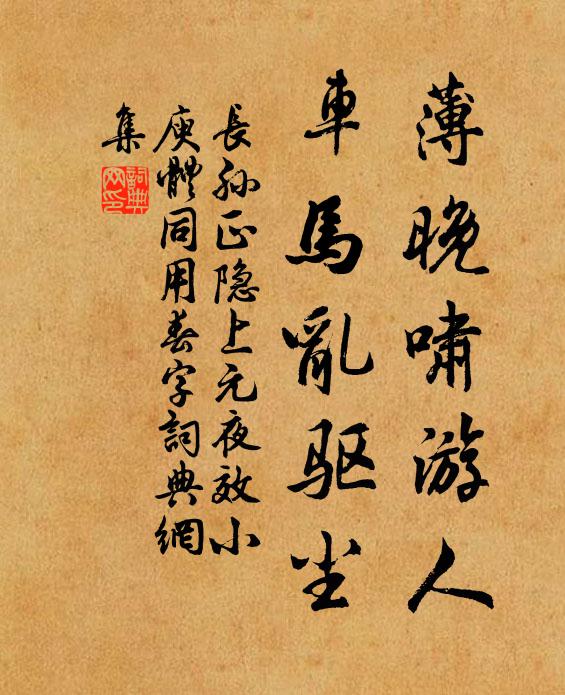 薄晚啸游人
車馬亂驱尘
長孙正隐上元夜效小
庾體同用春字詞典網
集
詞典網印